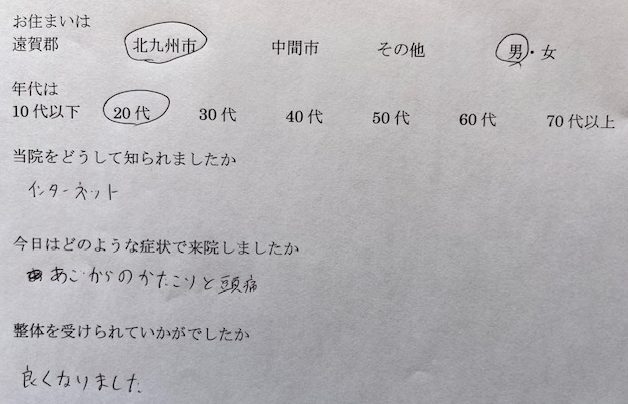 お住まいは
遠賀郡 北九州市 中間市 その他 男・女
年代は
10代以下 20代 30代 40代 50代 60代 70代以上
当院をどうして知られましたか
インターネット
今日はどのような症状で来院しましたか
あごからのかたこりと頭痛
整体を受けられていかがでしたか
良くなりました